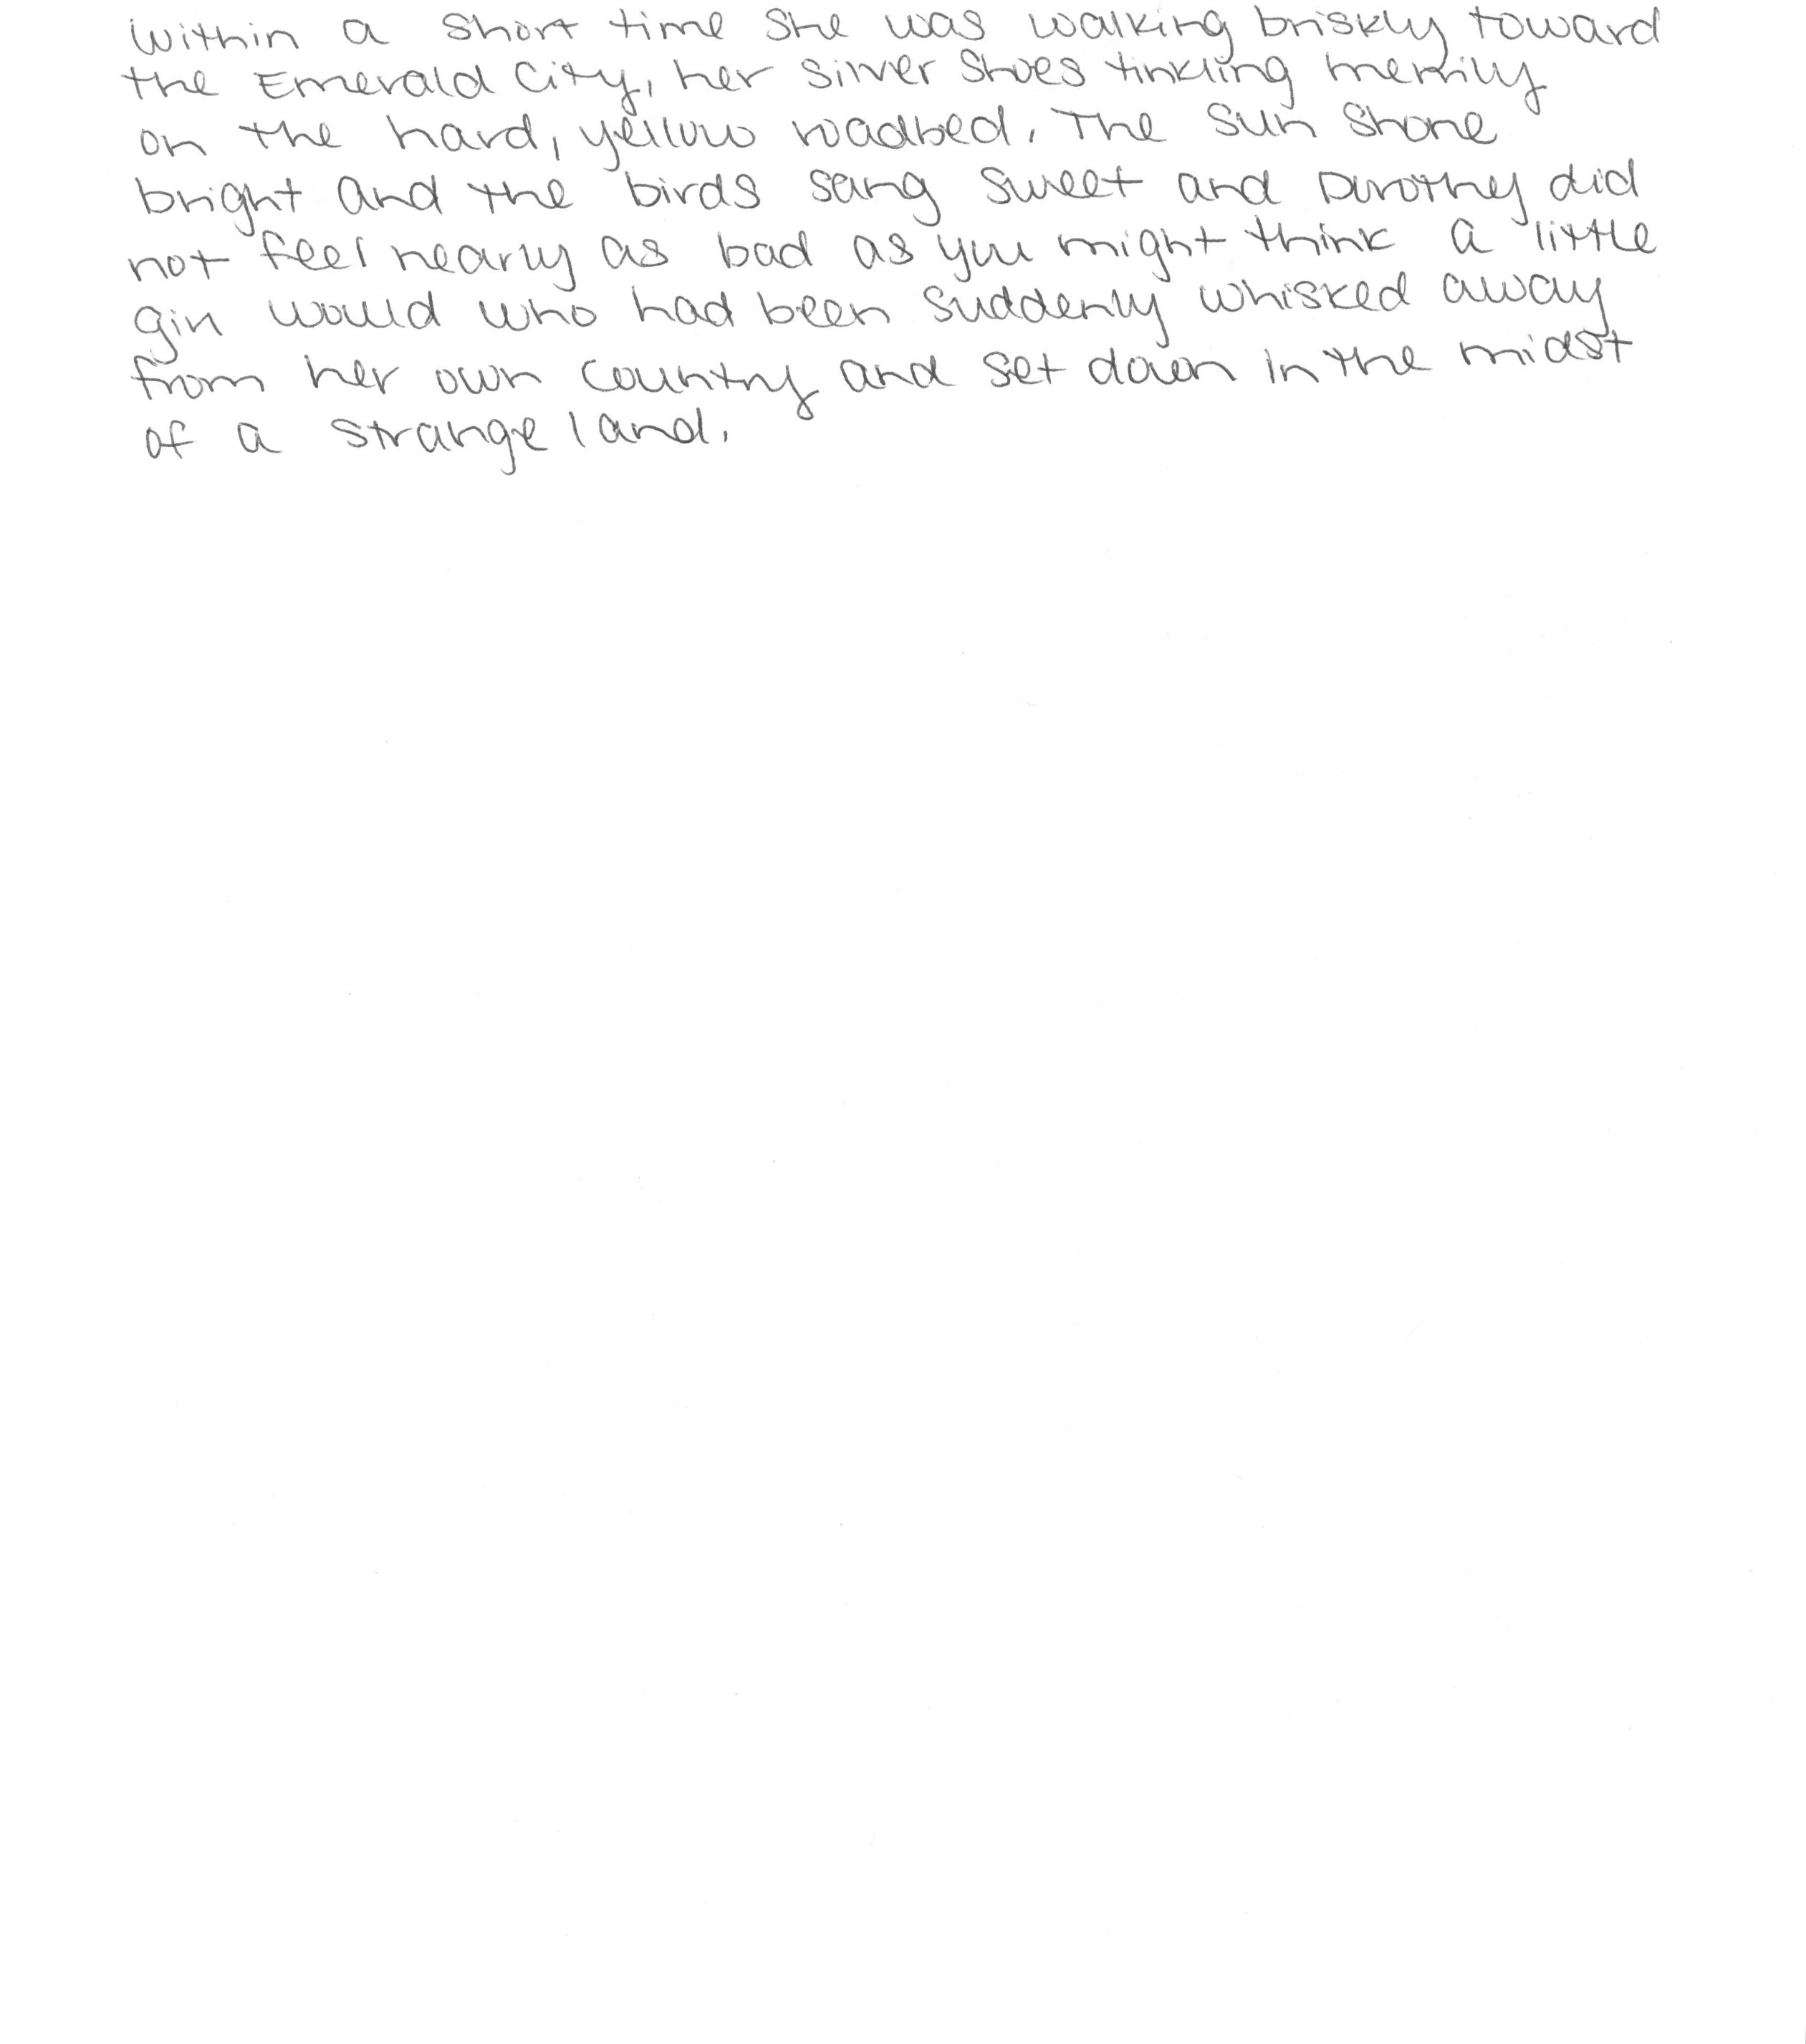 Within a short time she was walking briskly toward
the Emerald City, her Silver Shoes tinkling merrily
on the hard, yellow roadbed. The sun shone
bright and the birds sang sweet and Dorothy did
not feel nearly as bad as you might think a little
girl would who had been suddenly whisked away
from her own country and set down in the midst
of a strange land.